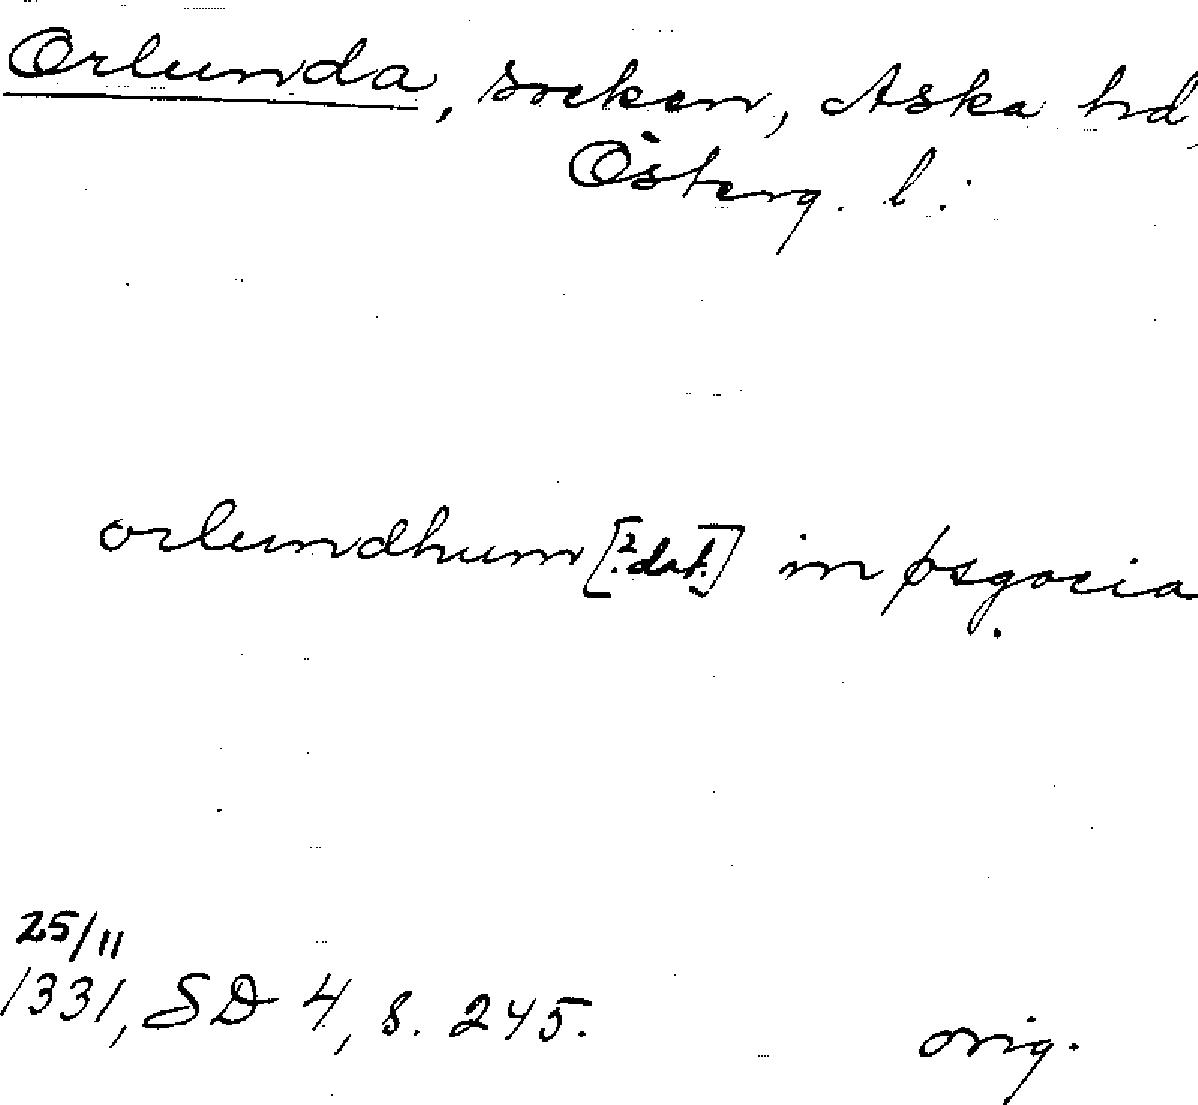 Orlunda, socken, Aska hd,
Österg. l.
orlundhum [?dat.] in øsgocia
25/11
1331, SD 4, s. 245.
orig.